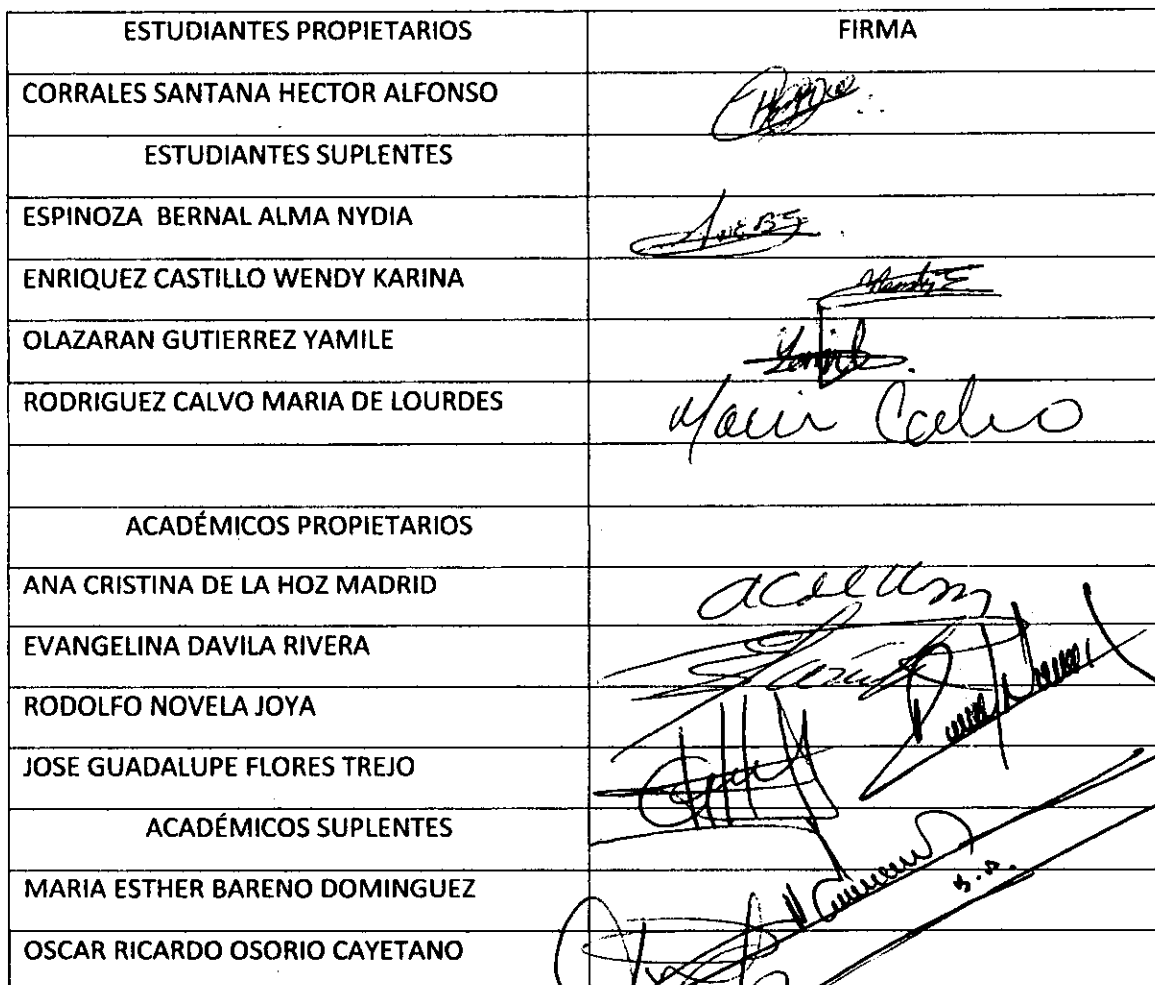 ESTUDIANTES PROPIETARIOS FIRMA
CORRALES SANTANA HECTOR ALFONSO
ESTUDIANTES SUPLENTES
ESPINOZA BERNAL ALMA NYDIA
ENRIQUEZ CASTILLO WENDY KARINA Wendy E
OLAZARAN GUTIERREZ YAMILE Yamile
RODRIGUEZ CALVO MARIA DE LOURDES Maria Calvo
ACADÉMICOS PROPIETARIOS
ANA CRISTINA DE LA HOZ MADRID
EVANGELINA DAVILA RIVERA
RODOLFO NOVELA JOYA
JOSE GUADALUPE FLORES TREJO
ACADÉMICOS SUPLENTES
MARIA ESTHER BARENO DOMINGUEZ
OSCAR RICARDO OSORIO CAYETANO